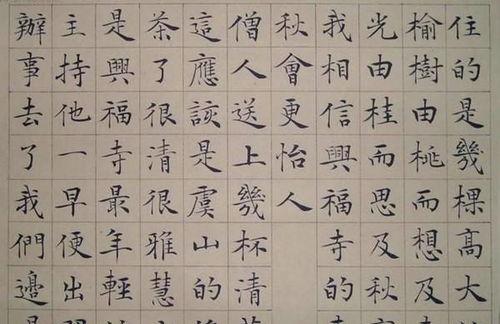 住的是幾棵高大
榆樹由桃而想及
光由桂而思及秋
我相信興福寺的
秋會更怡人
僧人送上幾杯清
這應該是虞山的
茶了很清很雅慧
是興福寺最年輕
主持他一早便出
辦事去了我們邊